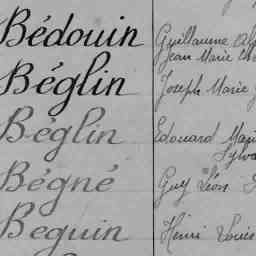 Bédouin Guillaume
Jean Marie
Béglin Joseph Marie
Béglin Edouard
Bégné Guy Léon
Beguin Henri Louis